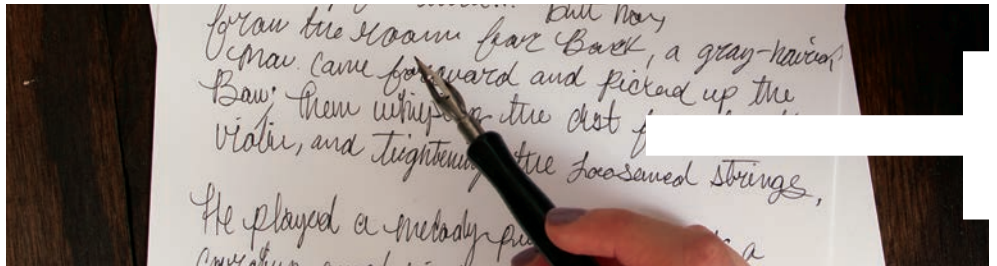 But no,
from the room far Back, a gray-haired
Man came forward and picked up the
Bow; Then wiping the dust
violin, and tightening the loosened strings,
He played a melody
a